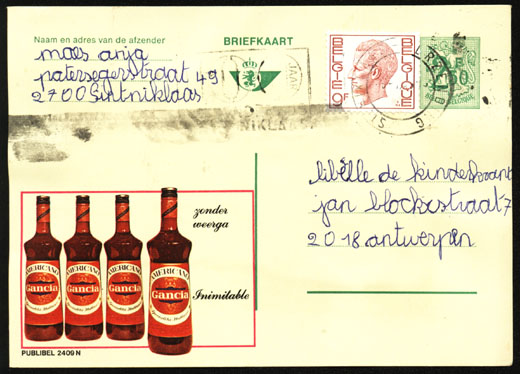 Naam en adres van de afzender
BRIEFKAART
maes anja
patersegerstraat 49
2700 Sintniklaas
BELGIE
BELGIQUE
F
libelle de kinderkrant
jan blockxstraat 7
2018 antwerpen
zonder
weerga
Inimitable
AMERICANO
Gancia
AMERICANO
Gancia
AMERICANO
Gancia
AMERICANO
Gancia
PUBLIBEL 2409 N